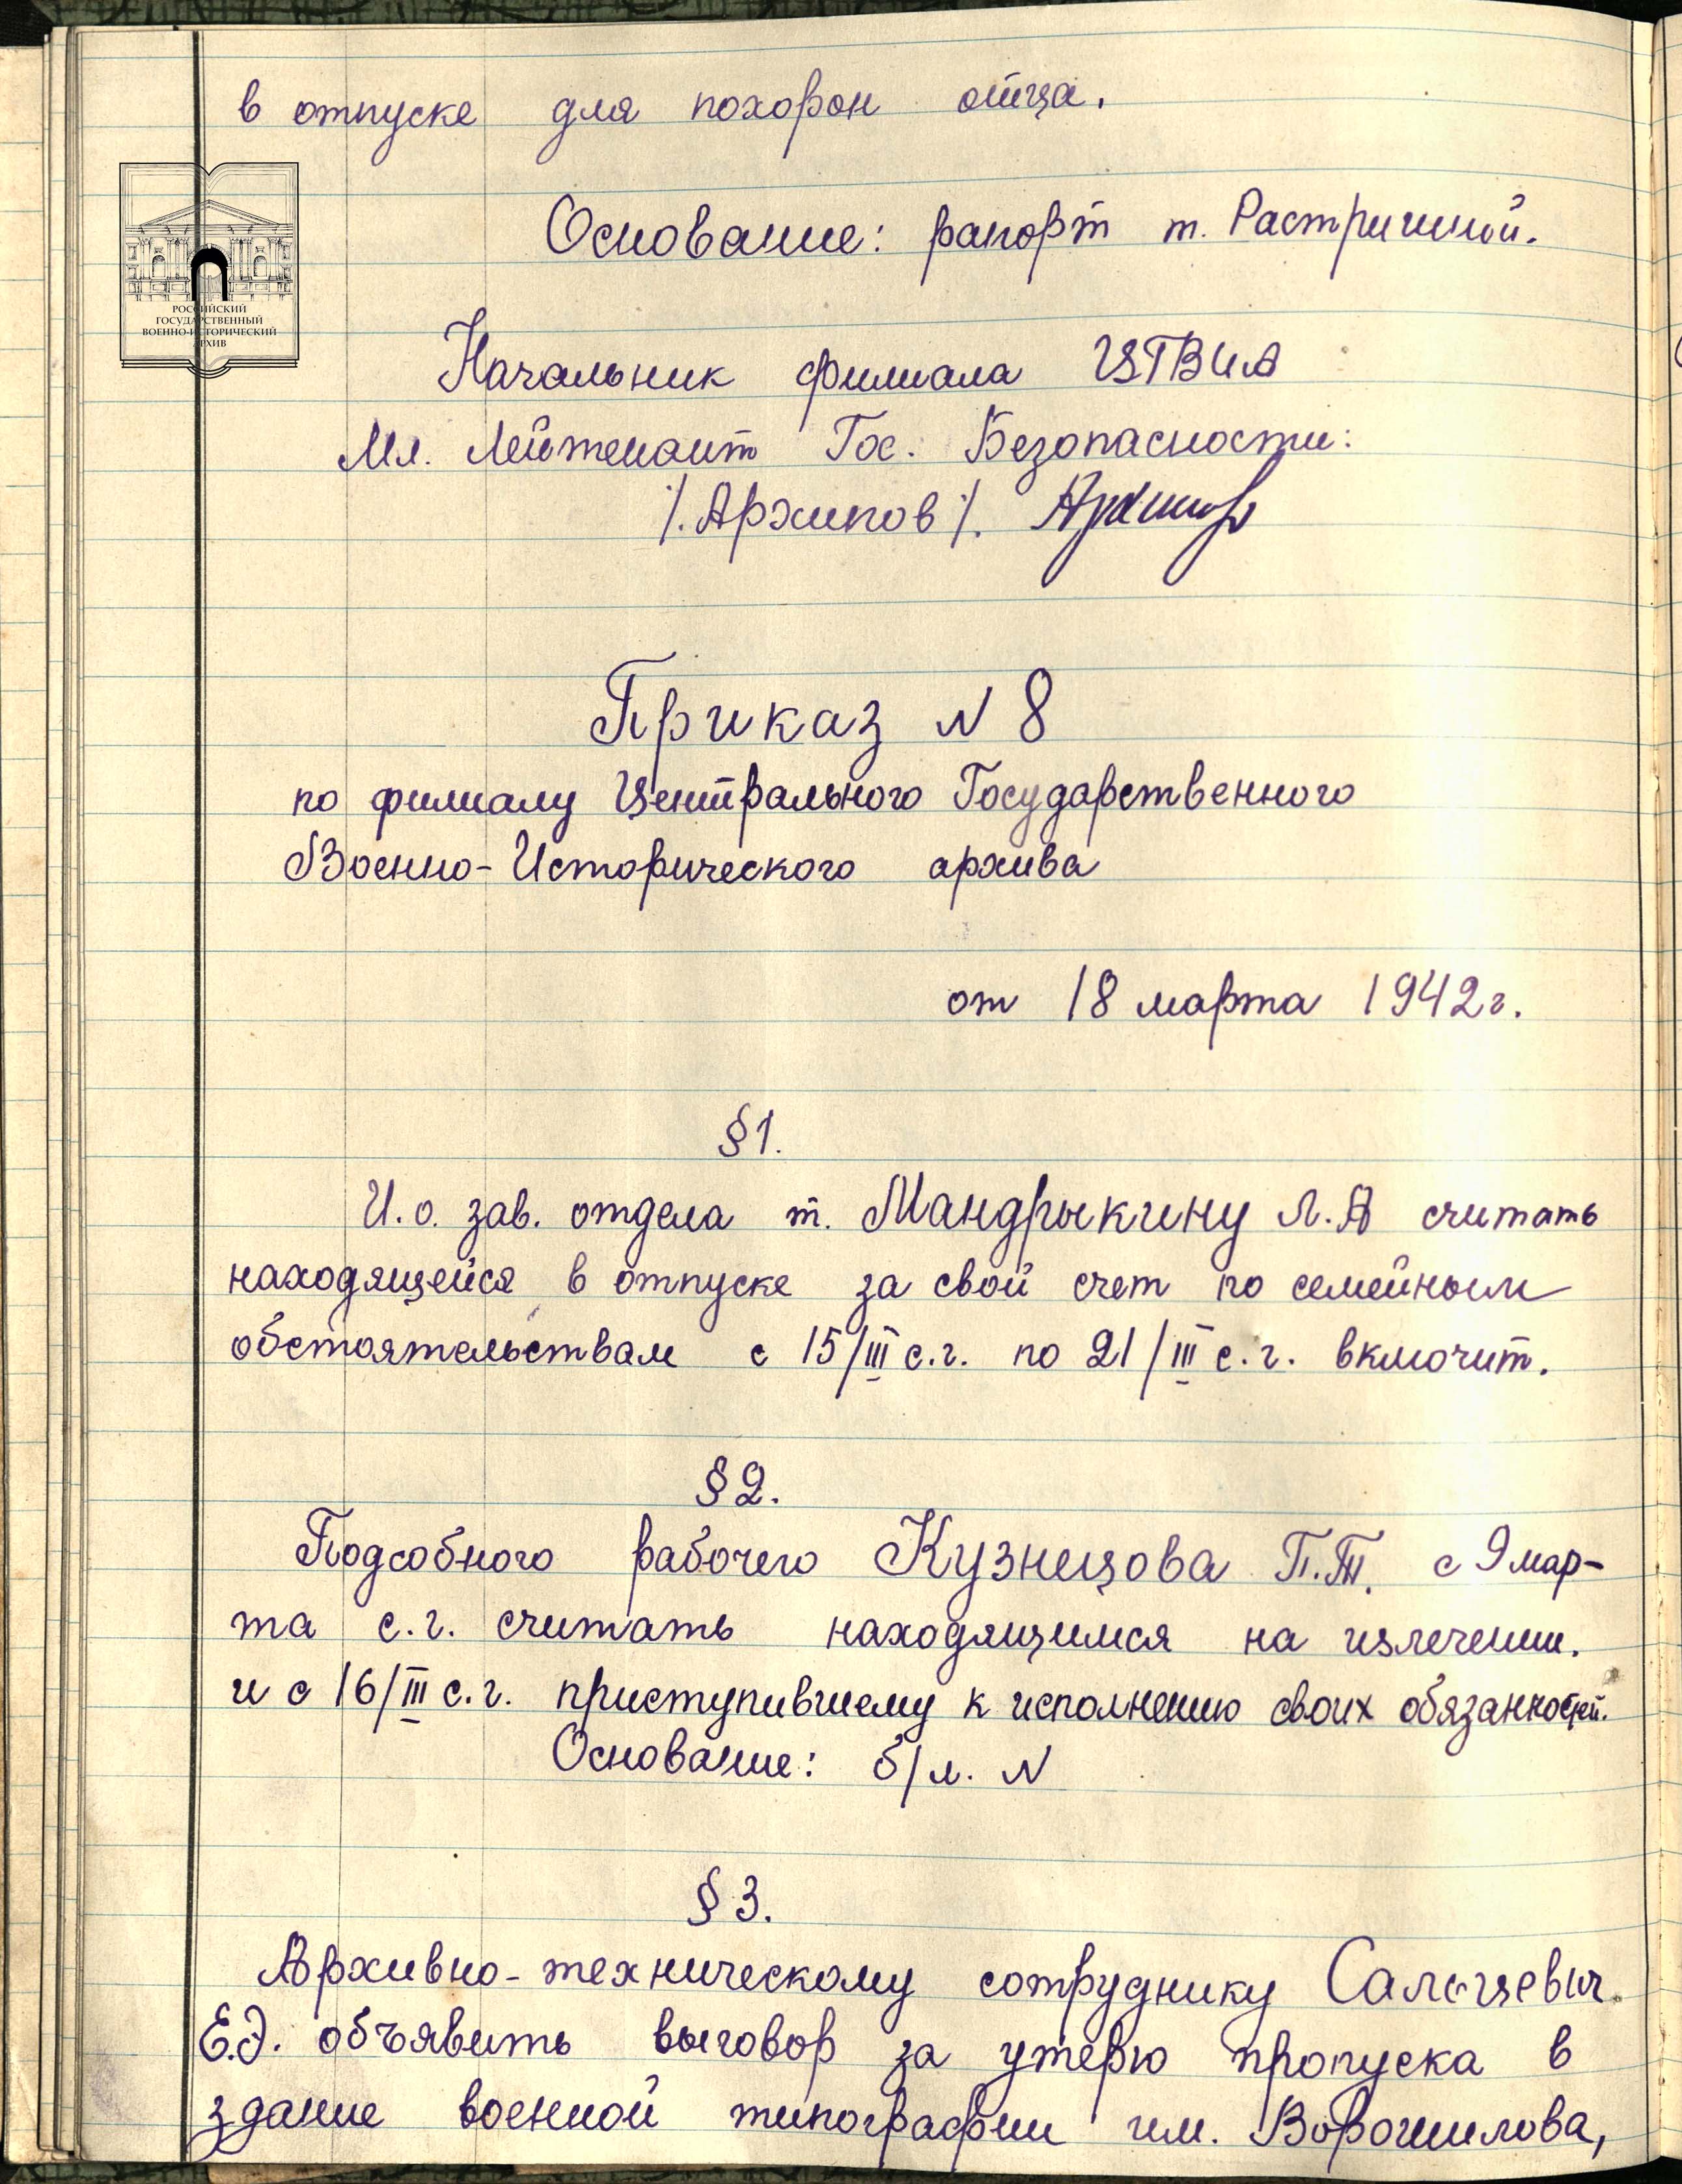 в отпуске для похорон отца.
Основание: рапорт т. Растригиной.
РОССИЙСКИЙ
ГОСУДАРСТВЕННЫЙ
ВОЕННО-ИСТОРИЧЕСКИЙ
АРХИВ
Начальник филиала ЦГВИА
Мл. Лейтенант Гос. Безопасности:
/.Архипов/. Архипов
Приказ N 8
по филиалу Центрального Государственного
Военно-Исторического архива
от 18 марта 1942 г.
§1.
И.о. зав. отдела т. Мандрыкину Л.А считать
находящейся в отпуске за свой счет по семейным
обстоятельствам с 15/III с.г. по 21/III с.г. включит.
§2.
Подсобного рабочего Кузнецова П.Т. с 9 мар-
та с.г. считать находящимся на излечении.
и с 16/III с.г. приступившему к исполнению своих обязанностей.
Основание: б/л. N
§3.
Архивно-техническому сотруднику
Е.Э. объявить выговор за утерю пропуска в
здание военной типографии им. Ворошилова,